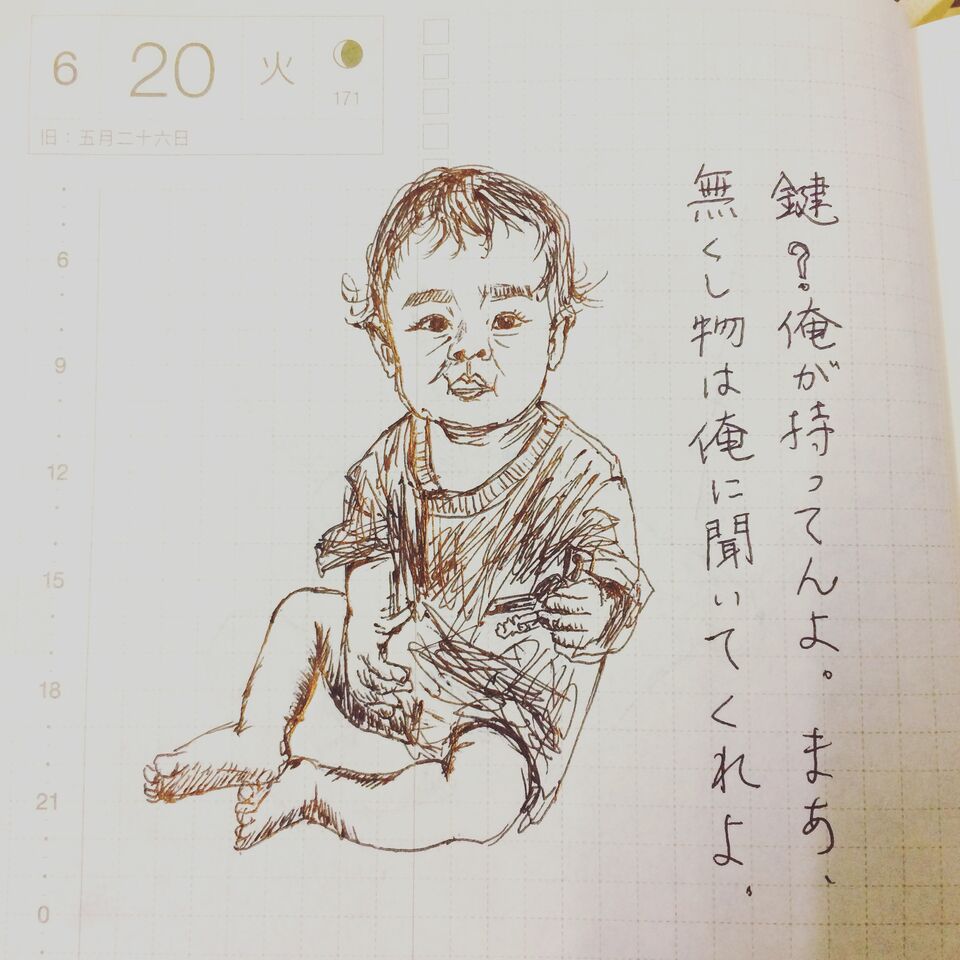 6 20 火
171
旧：五月二十六日
6
9
12
15
18
21
0
鍵？俺が持ってんよ。まあ、
無くし物は俺に聞いてくれよ。